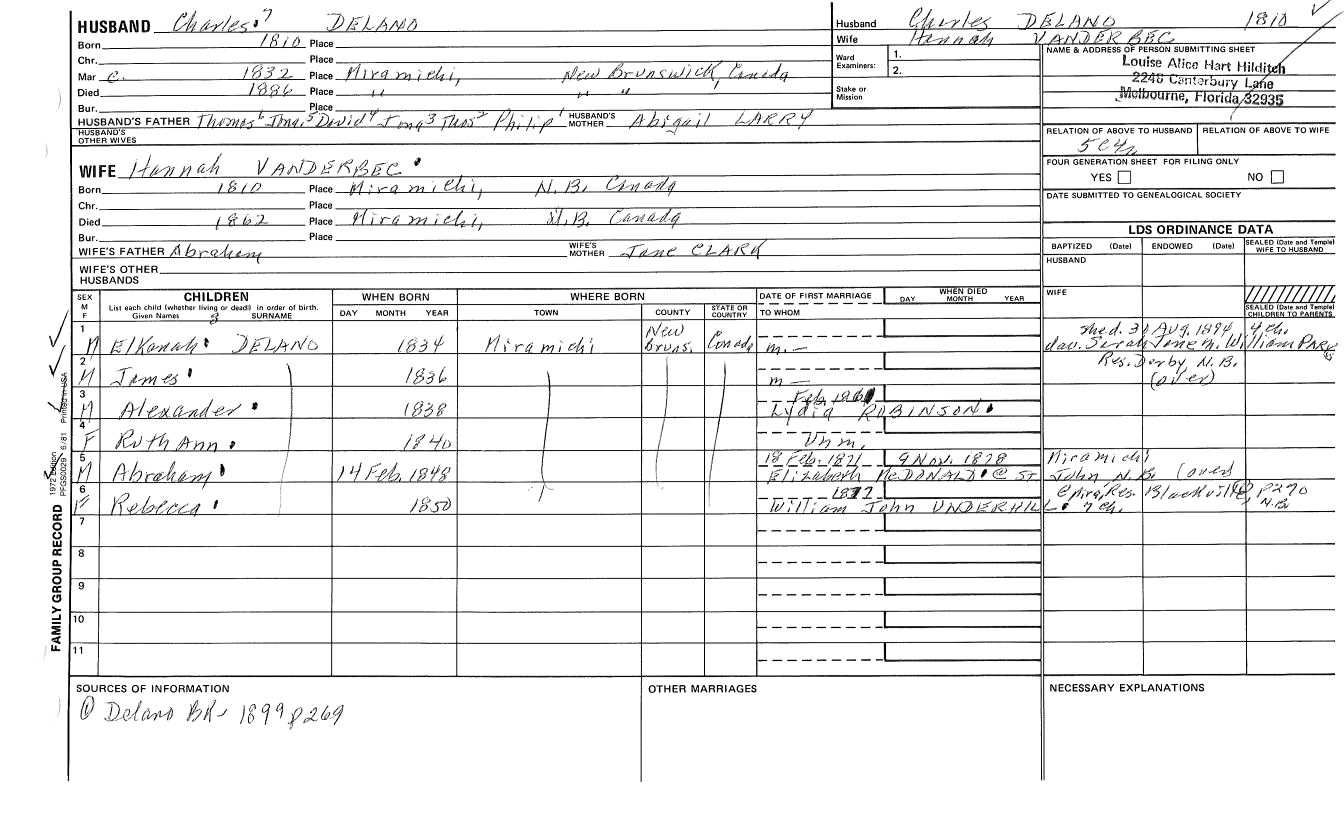 HUSBAND Charles⁷ DELANO
Born 1810 Place
Chr. Place
Mar c. 1832 Place Miramichi, New Brunswick, Canada
Died 1886 Place " " "
Bur. Place
HUSBAND'S FATHER Thomas⁶ Jona⁵ David⁴ Jona³ Thos² Philip¹ HUSBAND'S MOTHER Abigail LARRY
HUSBAND'S OTHER WIVES
Husband Charles DELANO 1810
Wife Hannah VANDERBEC
Ward Examiners: 1.
2.
Stake or Mission
NAME & ADDRESS OF PERSON SUBMITTING SHEET
Louise Alice Hart Hilditch
2246 Canterbury Lane
Melbourne, Florida 32935
RELATION OF ABOVE TO HUSBAND RELATION OF ABOVE TO WIFE
5C4r
FOUR GENERATION SHEET FOR FILING ONLY
YES NO
DATE SUBMITTED TO GENEALOGICAL SOCIETY
WIFE Hannah VANDERBEC
Born 1810 Place Miramichi, N.B. Canada
Chr. Place
Died 1862 Place Miramichi, N.B. Canada
Bur. Place
WIFE'S FATHER Abraham WIFE'S MOTHER Jane CLARK
WIFE'S OTHER HUSBANDS
LDS ORDINANCE DATA
BAPTIZED (Date) ENDOWED (Date) SEALED (Date and Temple) WIFE TO HUSBAND
HUSBAND
WIFE
SEALED (Date and Temple) CHILDREN TO PARENTS
SEX M F CHILDREN WHEN BORN WHERE BORN DATE OF FIRST MARRIAGE WHEN DIED
List each child (whether living or dead) in order of birth. Given Names SURNAME DAY MONTH YEAR TOWN COUNTY STATE OR COUNTRY TO WHOM DAY MONTH YEAR
1 M Elkanah DELANO 1834 Miramichi New Bruns. Canada m. —
d. 31 Aug. 1894, 4 ch.
dau. Sarah Jane m. William PARK
Res. Derby, N.B.
(over)
2 M James 1836 m —
3 M Alexander 1838 Feb. 1861 Lydia ROBINSON
4 F Ruth Ann 1840 Unm.
5 M Abraham 14 Feb. 1848 18 Feb. 1871 9 Nov. 1878 Miramichi
Elizabeth McDONALD @ St John N.B. (over)
6 F Rebecca 1850 1872 Res. Blackville, p270 N.B.
William John UNDERHILL 7 ch.
7
8
9
10
11
SOURCES OF INFORMATION OTHER MARRIAGES NECESSARY EXPLANATIONS
① Delano BK 1899 p269
FAMILY GROUP RECORD 1972 Edition PFGS0029 6/81 Printed in USA